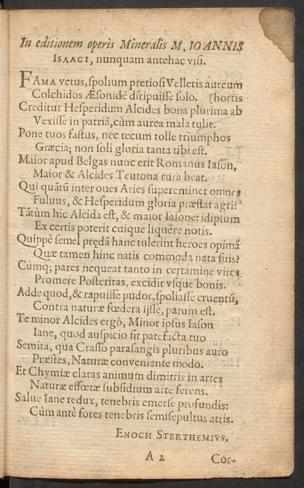 In editionem operis Mineralis M. IOANNIS
ISAACI, nunquam antehac visi.
FAMA vetus, spolium pretiosi Velleris aureum
Colchidos Æsonidẽ diripuisse solo. (hortis
Creditur Hesperidum Alcides bona plurima ab
Vexisse in patriã, cùm aurea mala tulit.
Pone tuos fastus, nec tecum tolle triumphos
Græcia; non soli gloria tanta tibi est.
Maior apud Belgas nunc erit Romanus Iason,
Maior & Alcides Teutona rura beat.
Qui quãtũ inter oues Aries supereminet omnes
Fuluus, & Hesperidum gloria præstat agri:
Tãtũm hic Alcida est, & maior Iasone: idipsum
Ex certis poterit cuique liquêre notis.
Quippè semel prędã hanc tulerint heroes opimã
Quæ tamen hinc natis commoda nata suis?
Cùmq; pares nequeat tanto in certamine vires
Promere Posteritas, excidit vsque bonis.
Adde quod, & rapuisse pudor, spoliasse cruentũ,
Contra naturæ fœdera ijsse, parum est.
Te minor Alcides ergò, Minor ipsus Iason
Iane, quod auspicio sit patefacta tuo
Semita, qua Crassò parasangis pluribus auro
Præstes, Naturæ conueniente modo.
Et Chymiæ claras animum dimittis in artes
Naturæ effœtæ subsidium arte ferens.
Salue Iane redux, tenebris emerse profundis:
Cùm antè fores tenebris semisepultus atris.
ENOCH STERTHEMIVS.
A 2 Cor-